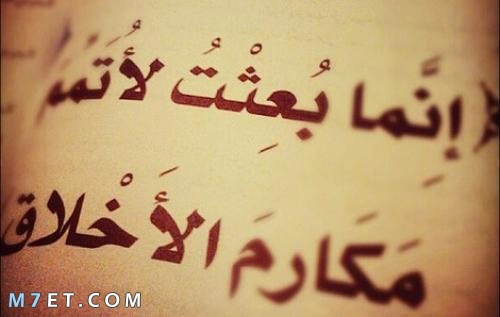 إِنَّما بُعِثْتُ لأُتَمِّمَ
مَكَارِمَ الأَخْلاق
M7ET.COM